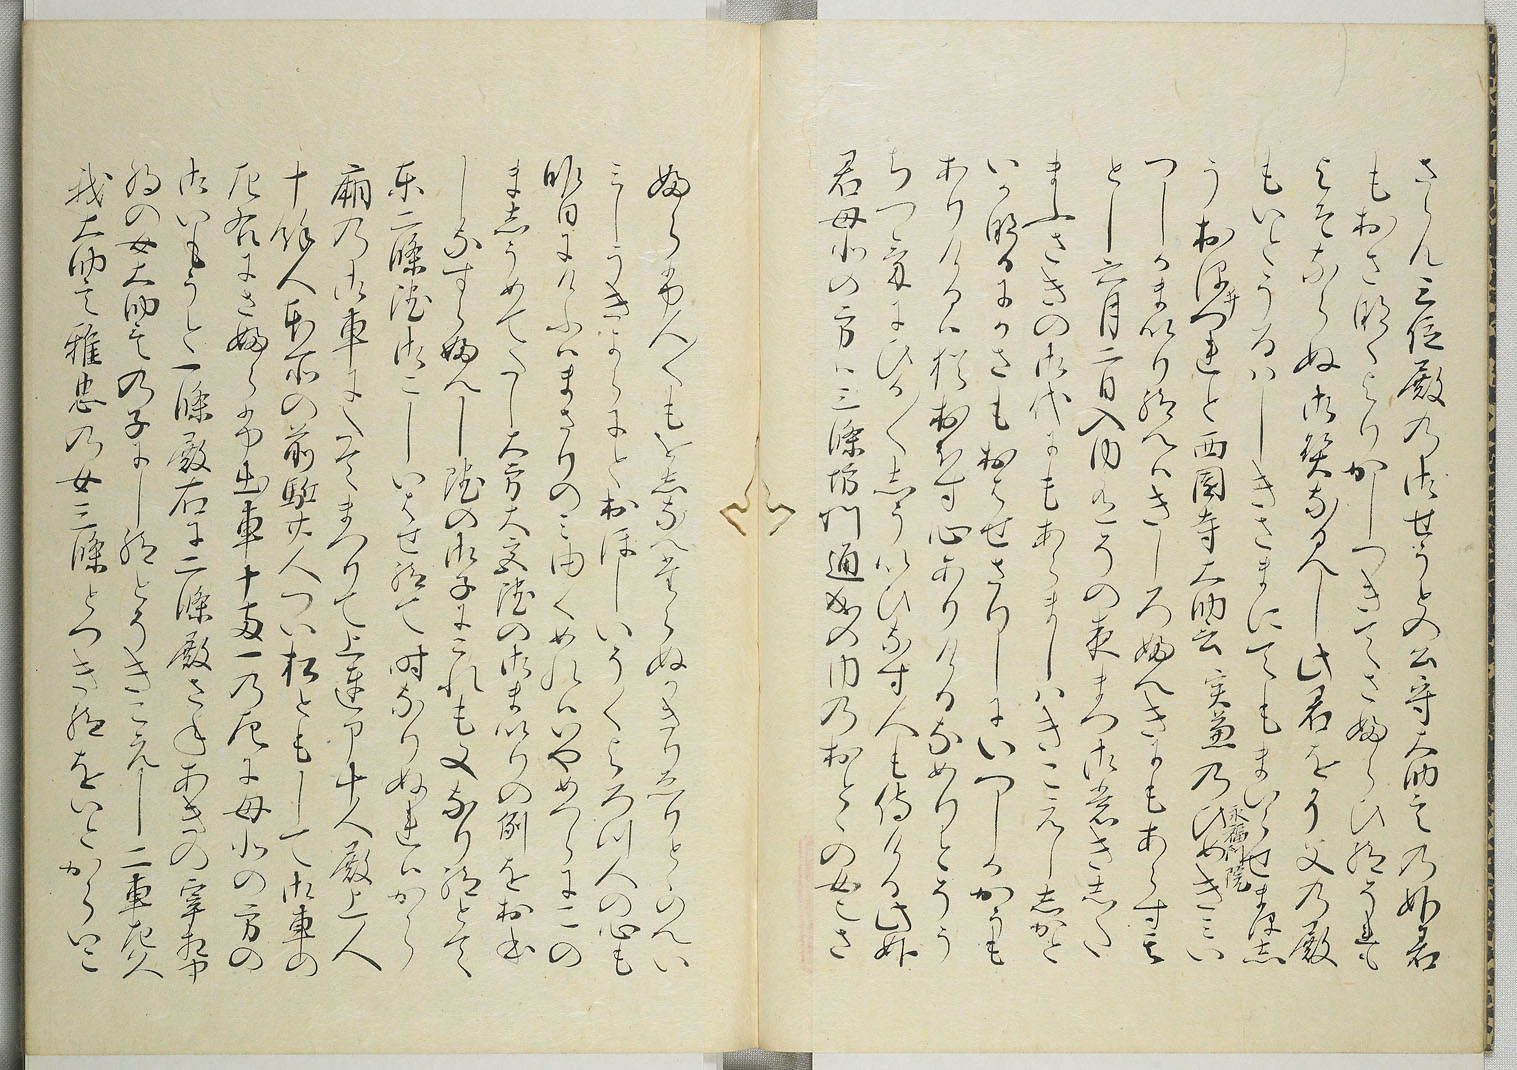 さらん三位殿の御せうとの公守大納言の姫君
もおさなくよりかしつきてさふらひ給うれも
よそならぬ御契なるへし此君をう父の殿
もいとうるはしきさまにてもまいらせまほし
うおほしつれと西園寺大納言実兼の姫きみい
永福門院
つしかまいり給へはきしろふへきにもあらす
とし六月二日入内そのの夜まつ御裳きした
まふさきの御代にもあらましはきこえしかと
いかなるにかさもおはせさりしにいつしかかうも
ありけるは猶おほす心ありけるなめりとうう
ちつけにひかひかしういひなす人も侍りける此姫
君母北の方は三條坊門通成の内のおとゝの女こさ
ふらふ人々もをしなへたらぬかきりえりとゝのへい
みしうきよらにとおほしいそくよろつ人の心も
昨日にけふはまさりのみゆくめれはいやめつらにこの
ましうめてたし大方大宮院の御まいりの例をおほ
しなすらふへし院の御子にこれも又なり給とて
東二條院御こしいはせ給て時なりぬれはから
廂の御車にたてまつりて上達部十人殿上人
十餘人本所の前駈廿人つい松ともして御車の
左右にさふらふ出車十両一の左に母北の方の
御いもうと一條殿右に二條殿さねあきの宰相中
将の女大納言の子にし給とそきこえし二車左久
我大納言雅忠の女三條とつき給をいとからいこ